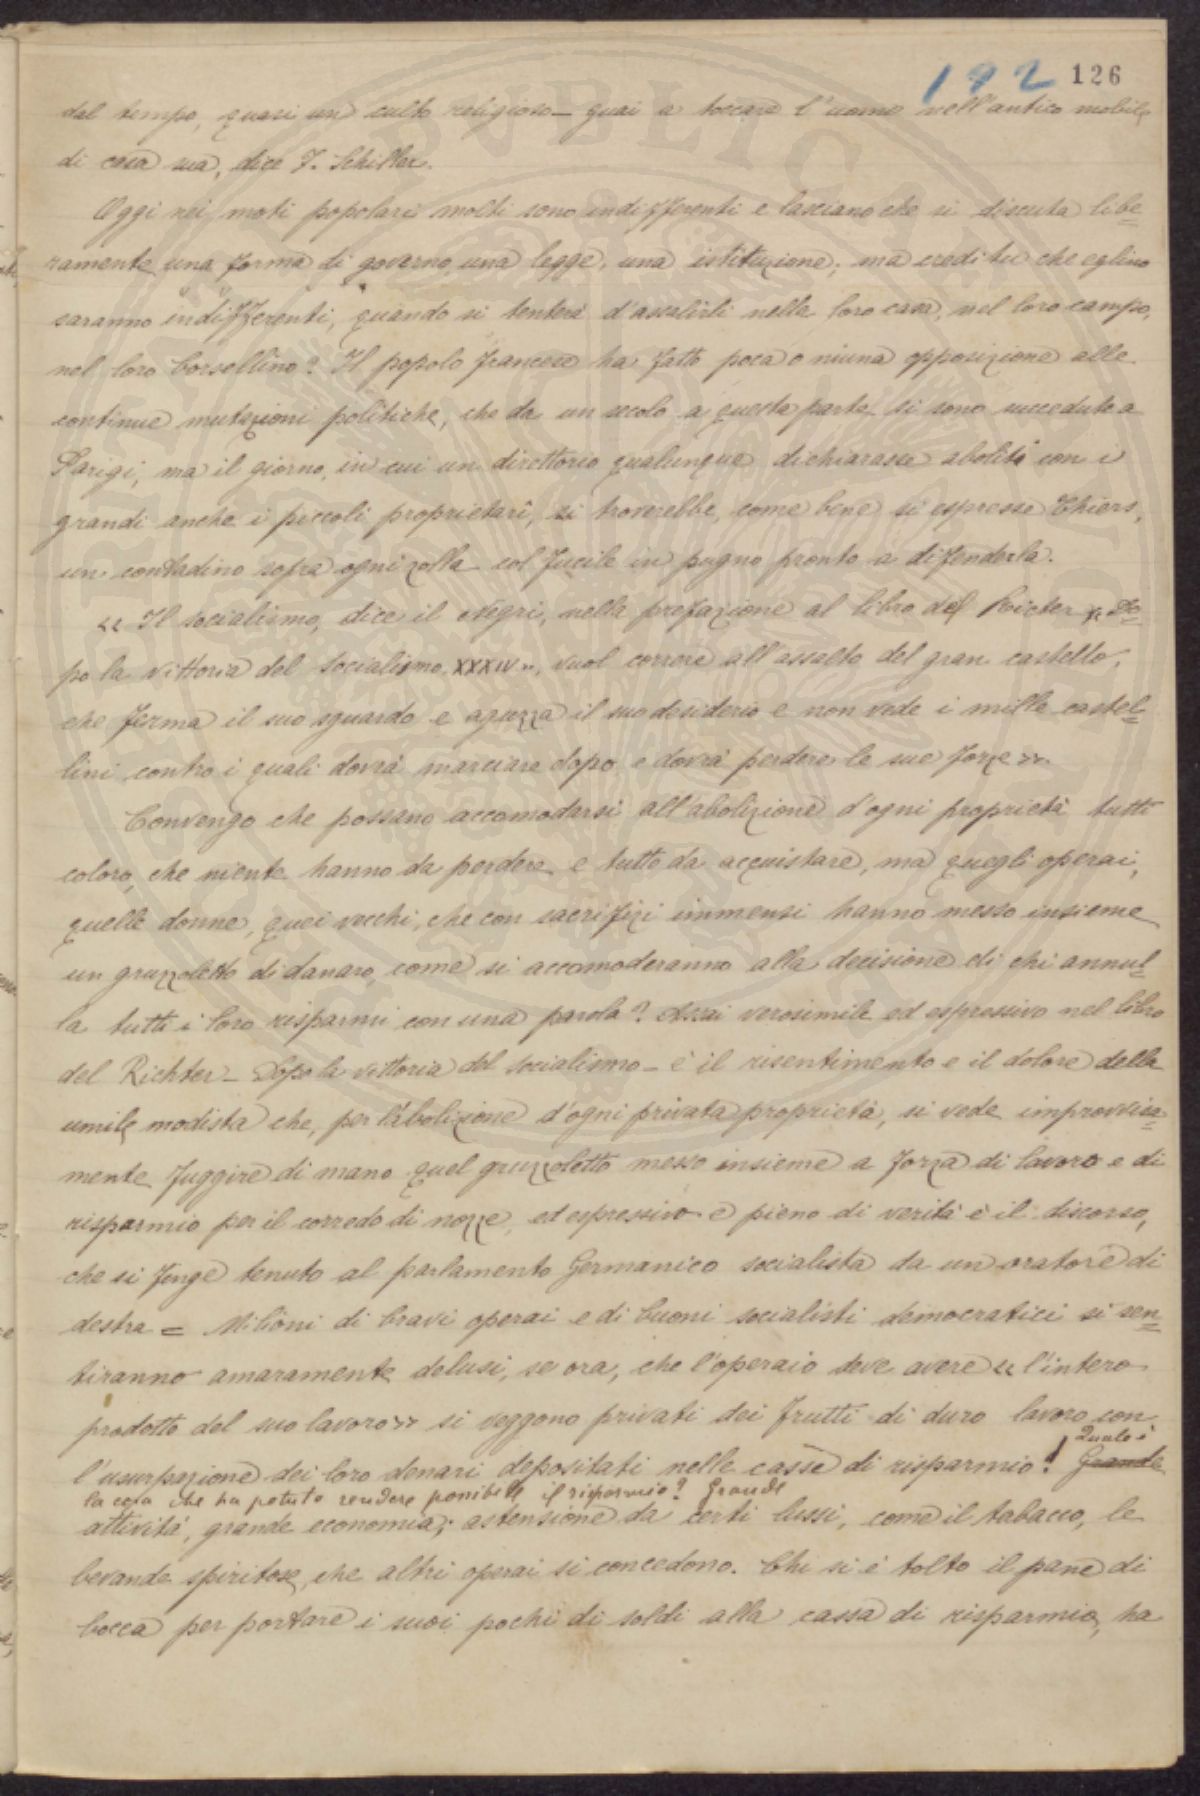 192 126
dal tempo, quasi un culto religioso_ guai a toccare l'uomo nell'antico mobile
di casa sua, dice F. Schiller.
Oggi nei moti popolari molti sono indifferenti e lasciano che si discuta libe=
ramente una forma di governo, una legge, una istituzione; ma credi tu che eglino
saranno indifferenti, quando si tenterà d'assalirli nella loro casa, nel loro campo,
nel loro borsellino? Il popolo francese ha fatto poca o niuna opposizione alle
continue mutazioni politiche, che da un secolo a questa parte si sono succedute a
Parigi; ma il giorno, in cui un direttorio qualunque dichiarasse aboliti con i
grandi anche i piccoli proprietari, si troverebbe, come bene si espresse Thiers,
un contadino sopra ogni zolla col fucile in pugno pronto a difenderla.
« Il socialismo, dice il Negri, nella prefazione al libro del Ricter « Do=
po la vittoria del socialismo XXXIV », vuol correre all'assalto del gran castello,
che ferma il suo sguardo e aguzza il suo desiderio e non vede i mille castel=
lini contro i quali dovrà marciare dopo e dovrà perdere le sue forze ».
Convengo che possano accomodarsi all'abolizione d'ogni proprietà tutti
coloro, che niente hanno da perdere e tutto da acquistare, ma quegli operai,
quelle donne, quei vecchi, che con sacrifizi immensi hanno messo insieme
un gruzzoletto di danaro, come si accomoderanno alla decisione di chi annul=
la tutti i loro risparmi con una parola? Assai verosimile ed espressivo nel libro
del Richter_ Dopo la vittoria del socialismo_ è il risentimento e il dolore della
umile modista che, per l'abolizione d'ogni privata proprietà, si vede improvvisa=
mente fuggire di mano quel gruzzoletto messo insieme a forza di lavoro e di
risparmio per il corredo di nozze, ed espressivo e pieno di verità è il discorso,
che si finge tenuto al parlamento Germanico socialista da un oratore di
destra = Milioni di bravi operai e di buoni socialisti democratici si sen=
tiranno amaramente delusi, se ora, che l'operaio deve avere « l'intero
prodotto del suo lavoro » si veggono privati dei frutti di duro lavoro con
l'usurpazione dei loro denari depositati nelle casse di risparmio! Grande Quale è
la cosa che ha potuto rendere possibile il risparmio? Grande
attività, grande economia; astensione da certi lussi, come il tabacco, le
bevande spiritose, che altri operai si concedono. Chi si è tolto il pane di
bocca per portare i suoi pochi di soldi alla cassa di risparmio, ha